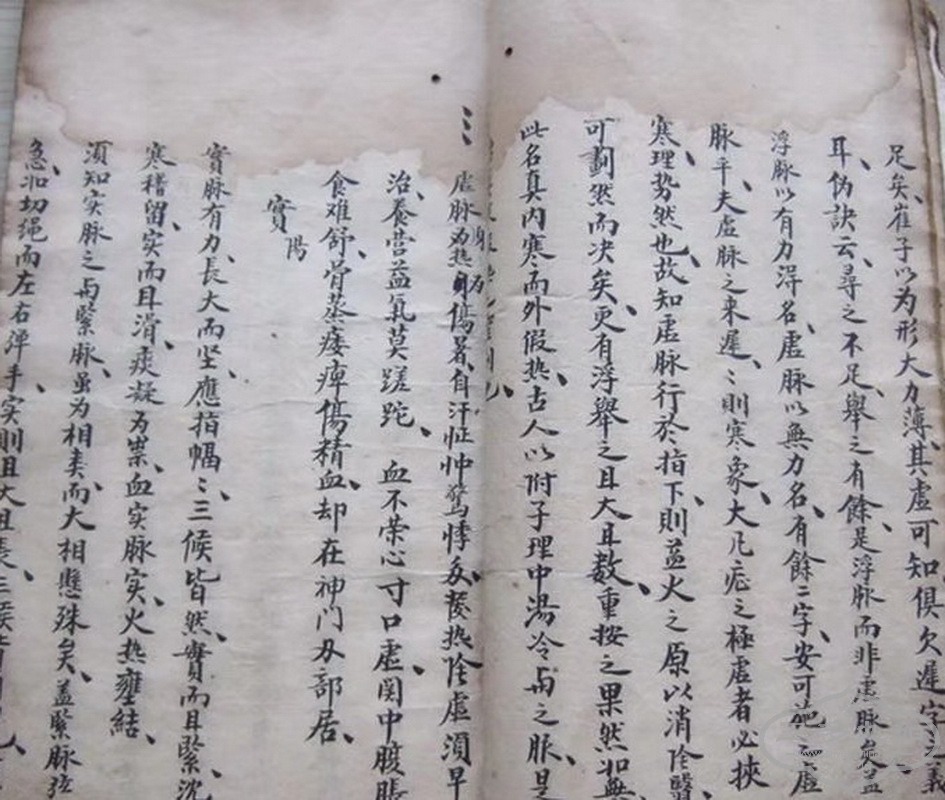 足矣、崔子以为形大力薄、其虚可知俱欠遲字之義
耳、伪訣云、尋之不足、舉之有餘、是浮脉而非虚脉矣盖
浮脉以有力淂名、虚脉以無力名、有餘二字、安可施之虚
脉乎、夫虚脉之来遲、〻則寒象、大凡症之極虚者必挾
寒、理势然也、故知虚脉行於指下、則益火之原以消陰翳
可劃然而决矣、更有浮舉之且大且数、重按之果然如無
此名真内寒而外假热、古人以附子理中湯冷与之脉、是
虚脉为热傷暑、自汗怔忡驚悸多、發热陰虚須早
治、養营益氣莫蹉跎、血不荣心寸口虚、関中腹脹
食难舒、骨蒸痿痺傷精血、却在神门刄部居、
實陽
實脉有力、長大而坚、應指愊〻、三候皆然、實而且緊、沈
寒稽留、实而且滑、痰凝为祟、血实脉实、火热壅結、
須知实脉之与緊脉、虽为相类、而大相懸殊矣、盖緊脉弦
急、如切绳而左右弹手、实則且大且長、三候皆